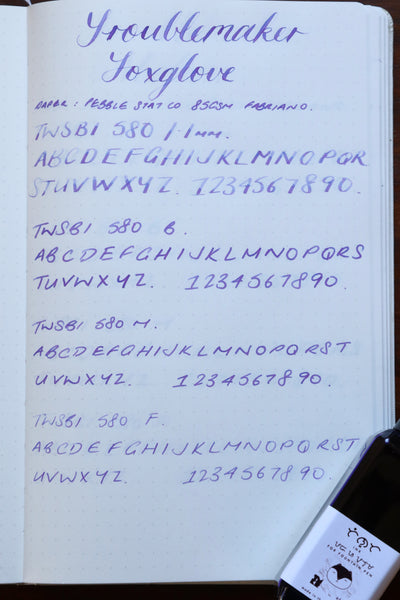 Troublemaker
Foxglove
PAPER: PEBBLE STAT CO 85GSM FABRIANO.
TWSBI 580 1.1mm.
ABCDEFGHIJKLMNOPQR
STUVWXYZ. 1234567890.
TWSBI 580 B.
ABCDEFGHIJKLMNOPQRS
TUVWXYZ. 1234567890.
TWSBI 580 M.
ABCDEFGHIJKLMNOPQRST
UVWXYZ. 1234567890.
TWSBI 580 F.
ABCDEFGHIJKLMNOPQRST
UVWXYZ. 1234567890.
INK
FOR FOUNTAIN PEN